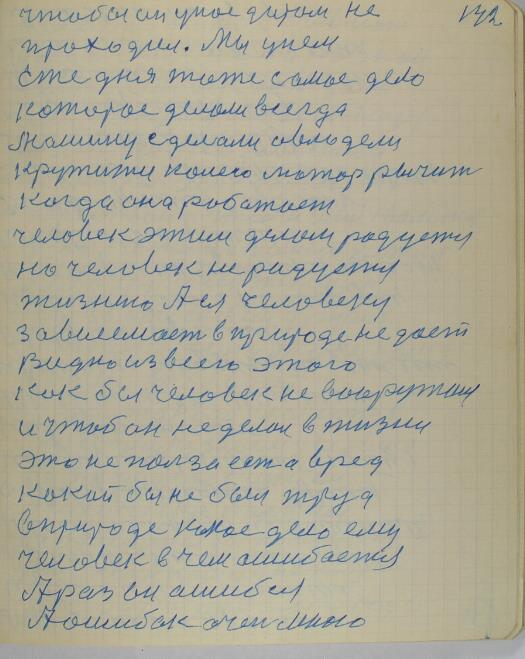 чтобы он у нас даром не 172
проходил. Мы учем
Сте дня тоже самое дело
которое делали всегда
Машину сделали овлодели
Крутити колесо мотор рычит
Когда она работает
человек этим делом радуется
но человек не радуется
жизнию А ея человеку
в природе не дает
видно из всего этого
как бы человек не вооружал
и чтоб он не делал в жизни
это не полза еста вред
какой бы не был труд
в природе дело ему
человек в чем ошибается
А раз он ошибся
А ошибок очен много